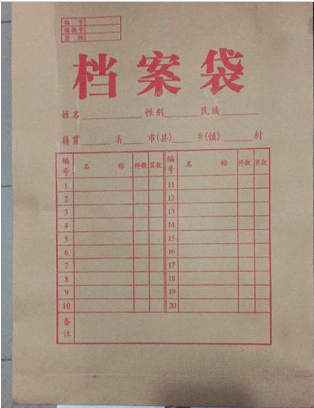 档案袋
姓名 性别 民族
籍贯 省 市(县) 乡(镇) 村
编号 名 称 件数 页数 编号 名 称 件数 页数
1 11
2 12
3 13
4 14
5 15
6 16
7 17
8 18
9 19
10 20
备注